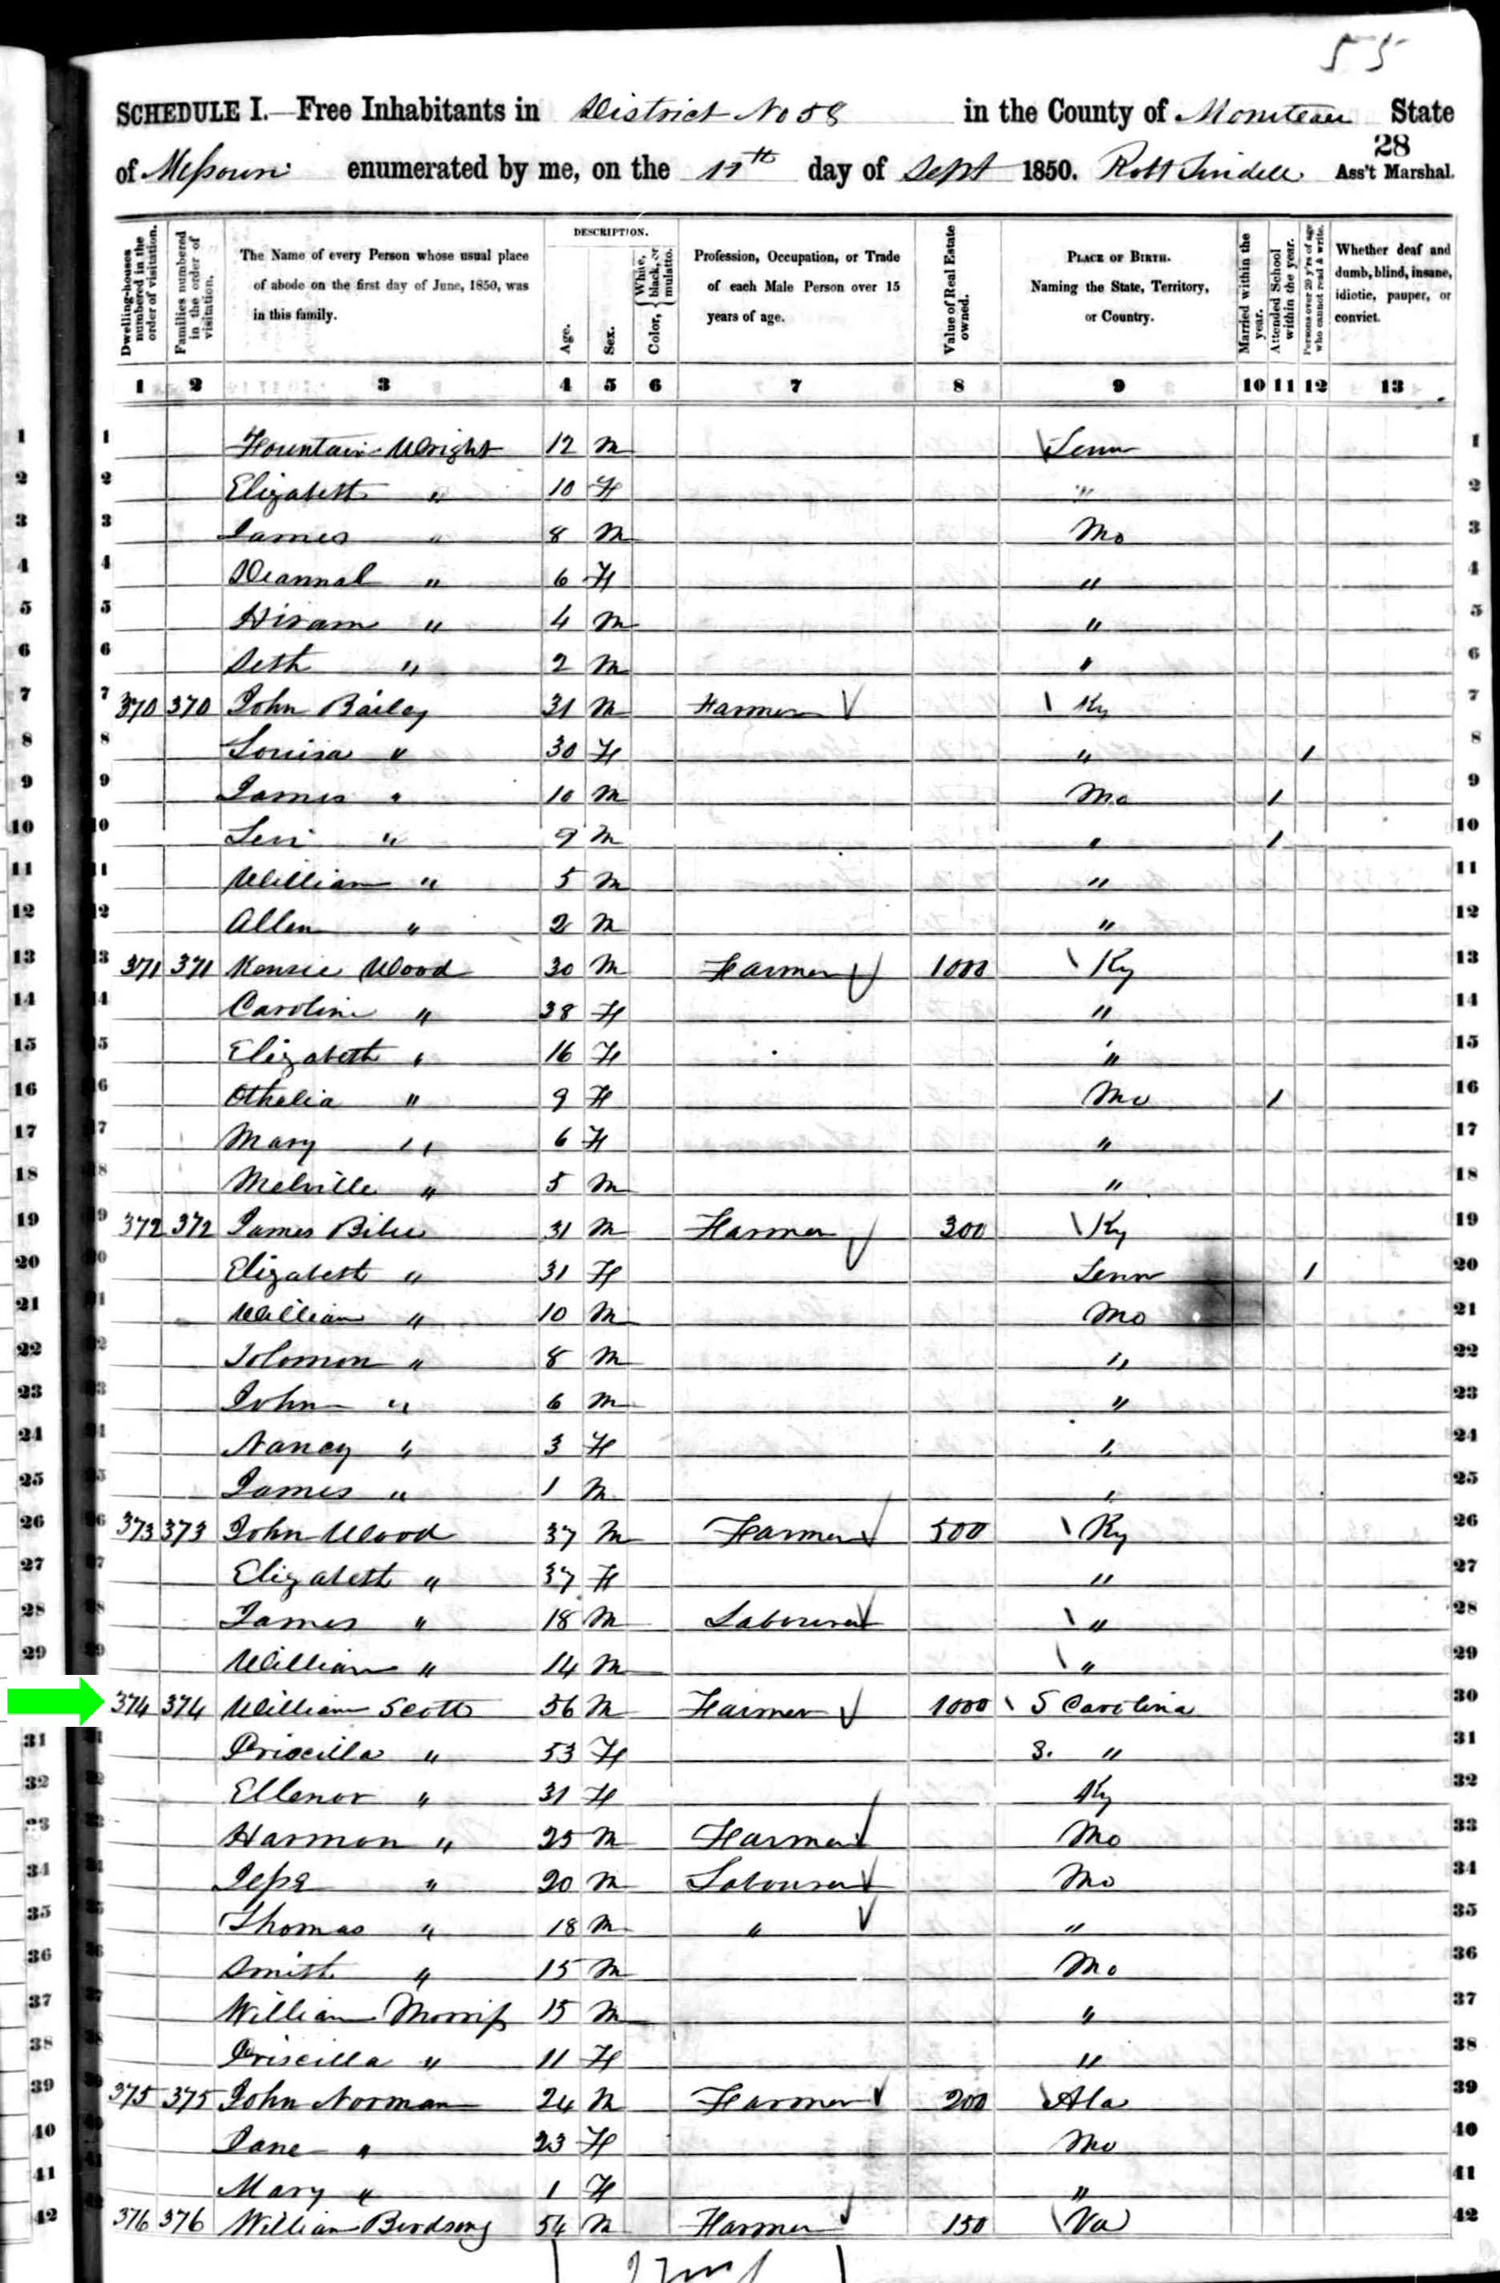 55
SCHEDULE I.—Free Inhabitants in District No 58 in the County of Moniteau State
of Missouri enumerated by me, on the 11th day of Sept 1850. Robt Tindell Ass't Marshal.
28
Dwelling-houses numbered in the order of visitation.
Families numbered in the order of visitation.
The Name of every Person whose usual place of abode on the first day of June, 1850, was in this family.
DESCRIPTION.
Age.
Sex.
Color, { White, black, or mulatto.
Profession, Occupation, or Trade of each Male Person over 15 years of age.
Value of Real Estate owned.
PLACE OF BIRTH. Naming the State, Territory, or Country.
Married within the year.
Attended School within the year.
Persons over 20 y'rs of age who cannot read & write.
Whether deaf and dumb, blind, insane, idiotic, pauper, or convict.
1 2 3 4 5 6 7 8 9 10 11 12 13
1 Fountain Wright 12 M Tenn 1
2 Elizabeth " 10 F " 2
3 James " 8 M Mo 3
4 " 6 F " 4
5 Hiram " 4 M " 5
6 Seth " 2 M " 6
7 370 370 John Bailey 31 M Farmer Ky 7
8 Louisa " 30 F " 1 8
9 James " 10 M Mo 1 9
10 Levi " 9 M " 1 10
11 William " 5 M " 11
12 Allen " 2 M " 12
13 371 371 Kensie Wood 30 M Farmer 1000 Ky 13
14 Caroline " 38 F " 14
15 Elizabeth " 16 F " 15
16 Othelia " 9 F Mo 1 16
17 Mary " 6 F " 17
18 Melville " 5 M " 18
19 372 372 James Bilue 31 M Farmer 300 Ky 19
20 Elizabeth " 31 F Tenn 1 20
21 William " 10 M Mo 21
22 Solomon " 8 M " 22
23 John " 6 M " 23
24 Nancy " 3 F " 24
25 James " 1 M " 25
26 373 373 John Wood 37 M Farmer 500 Ky 26
27 Elizabeth " 37 F " 27
28 James " 18 M Labourer " 28
29 William " 14 M " 29
374 374 William Scott 56 M Farmer 1000 S Carolina 30
31 Priscilla " 53 F S. " 31
32 Ellenor " 31 F Ky 32
33 Harmon " 25 M Farmer Mo 33
34 Jesse " 20 M Labourer Mo 34
35 Thomas " 18 M " " 35
36 Smith " 15 M Mo 36
37 William Morriss 15 M " 37
38 Priscilla " 11 F " 38
39 375 375 John Norman 24 M Farmer 200 Ala 39
40 Jane " 23 F Mo 40
41 Mary " 1 F " 41
42 376 376 William Birdsong 54 M Farmer 150 Va 42